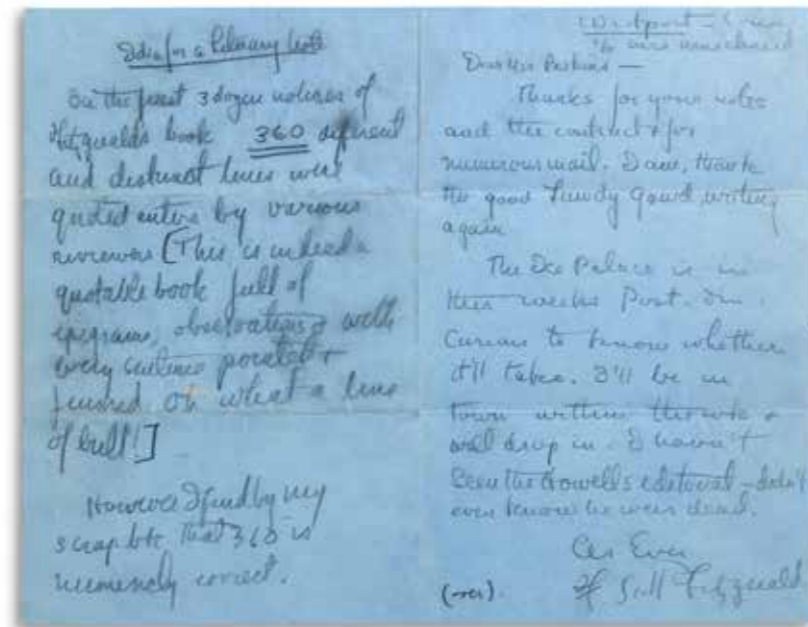 Idea for a Literary Note
On the first 3 dozen notices of
Fitzgeralds book 360 different
and distinct lines were
quoted entire by various
reviewers [This is indeed a
quotable book full of
epigrams, observations & with
every sentence pointed &
finished Oh what a line
of bull!]
However I find by my
scrap bk that 360 is
numericly correct.
Westport - Conn
Dear Mr Perkins —
Thanks for your notes
and the contract & for
numerous mail. I am, thank
the good Lawdy Gawd, writing
again
The Ice Palace is in
this weeks Post. I'm
curious to know whether
it'll take. I'll be in
town within the wk &
will drop in. I haven't
seen the Howells editorial - didn't
even know he was dead.
As Ever
F Scott Fitzgerald
(over)